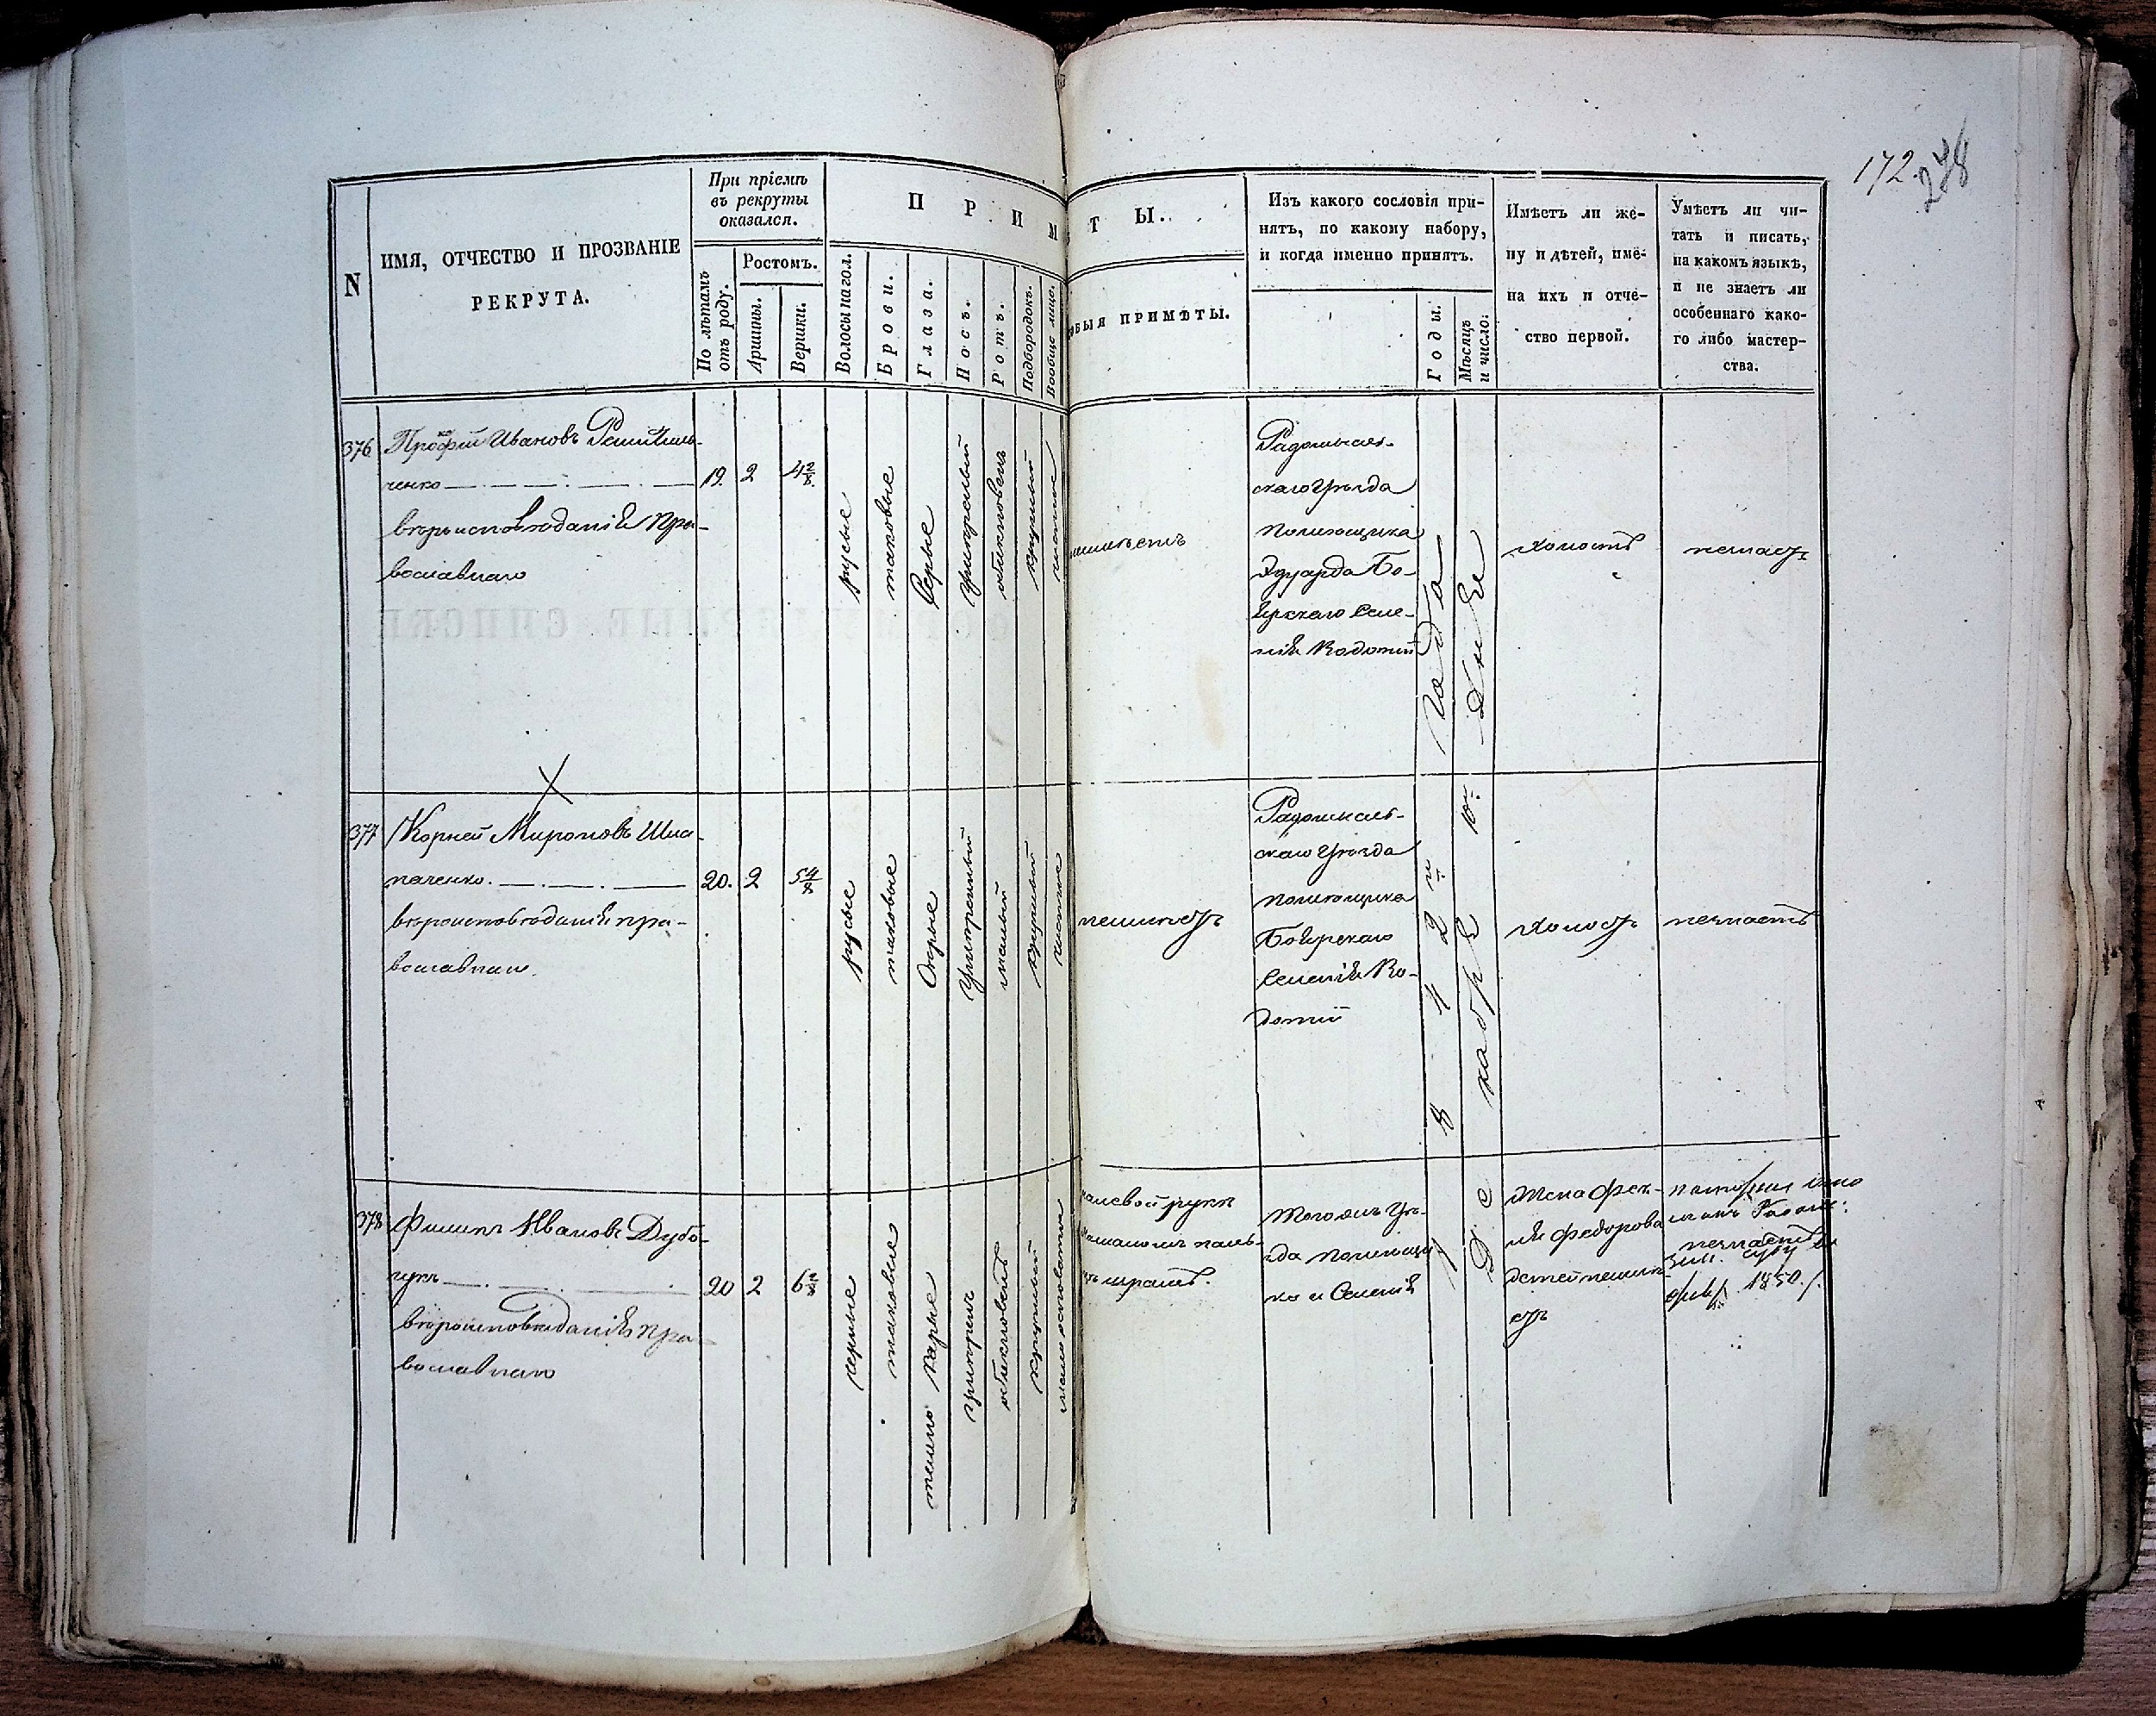 172. 278
N
ИМЯ, ОТЧЕСТВО И ПРОЗВАНІЕ
РЕКРУТА.
При пріемѣ
въ рекруты
оказался.
По лѣтамъ
отъ роду.
Ростомъ.
Аршины.
Вершки.
П Р И М
Волосы на гол.
Брови.
Глаза.
Носъ.
Ротъ.
Подбородокъ.
Вообще лицо.
Т Ы.
БЫЯ ПРИМѢТЫ.
Изъ какого сословія при-
нятъ, по какому набору,
и когда именно принятъ.
Годы.
Мѣсяцъ
и число.
Имѣетъ ли же-
ну и дѣтей, имё-
на ихъ и отче-
ство первой.
Умѣетъ ли чи-
тать и писать,
на какомъ языкѣ,
и не знаетъ ли
особеннаго како-
го либо мастер-
ства.
376
Ивановъ
ченко
вѣроисповѣданія Пра-
вославнаго
19.
2
4 2/8.
русые
таковые
Серые
умѣренный
обыкновенъ
круглый
неимѣетъ
Радомысль-
скаго Уѣзда
помѣщика
Эдуарда Бо-
ярскаго Селе-
нія Кодотий
холостъ
незнаетъ
377
Корней Мироновъ Шпа-
паченко.
вѣроисповѣданія пра-
вославнаго.
20.
2
5 4/8
русые
таковые
Серые
умѣренный
малый
круглый
неимѣетъ
Радомысль-
скаго Уѣзда
помѣщика
Боярскаго
Селенія Ко-
дотий
холостъ
незнаетъ
378
Филипъ Ивановъ Дубо-
вѣроисповѣданія пра-
вославнаго
20
2
черные
таковые
темно карие
умѣренъ
обыкновенъ
круглый
на левой рукѣ
шрамъ.
того жъ Уѣ-
зда помѣщи-
ка и Селенія
1842 Года
Декабря 10 Дня
Жена
Федорова
детей неимѣ-
етъ
незнаетъ
1850.